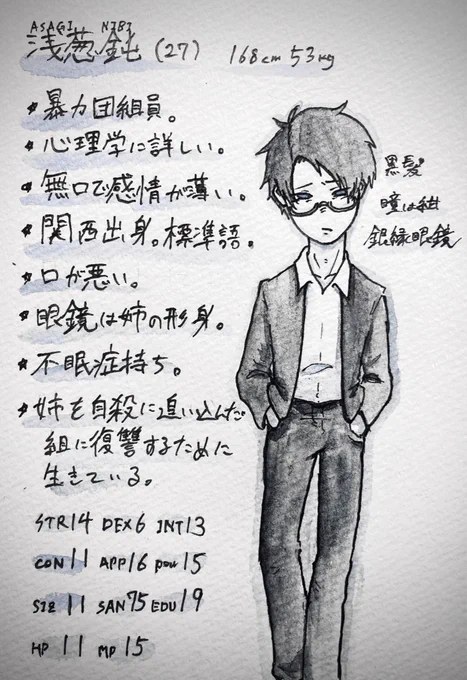 ASAGI NIBI
浅葱 鈍 (27) 168cm 53kg
★暴力団組員。
★心理学に詳しい。
★無口で感情が薄い。
★関西出身。標準語。
★口が悪い。
★眼鏡は姉の形身。
★不眠症持ち。
★姉を自殺に追い込んだ
組に復讐するために
生きている。
黒髪
瞳は紺
銀縁眼鏡
STR14 DEX6 INT13
CON11 APP16 POW15
SIZ11 SAN75 EDU19
HP11 MP15